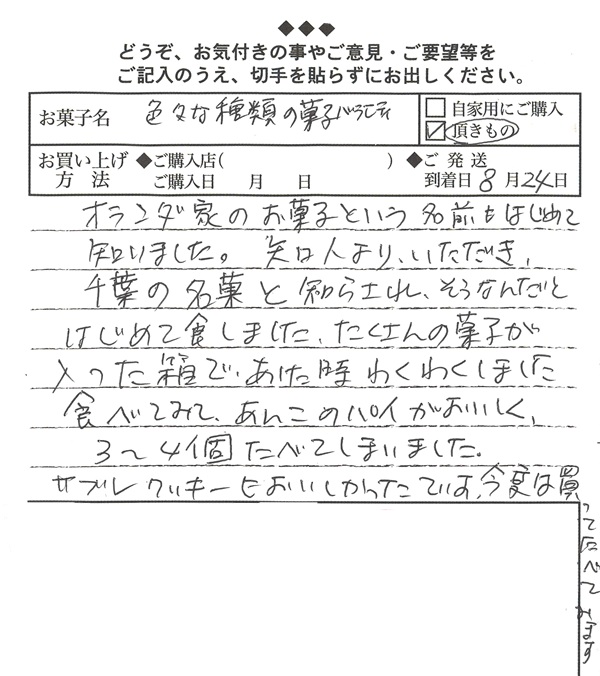 ◆◆◆
どうぞ、お気付きの事やご意見・ご要望等を
ご記入のうえ、切手を貼らずにお出しください。
お菓子名 色々な種類の菓子バラエティ
□ 自家用にご購入
☑ 頂きもの
お買い上げ方法 ◆ご購入店( )
ご購入日 月 日
◆ご発送
到着日 8月24日
オランダ家のお菓子という名前もはじめて
知りました。知人より、いただき、
千葉の名菓と知らされ、そうなんだと
はじめて食しました、たくさんの菓子が
入った箱で、あけた時わくわくしました
食べてみて、あんこのパイがおいしく、
3〜4個たべてしまいました。
サブレクッキーもおいしかったです。今度は買
ってたべてみます